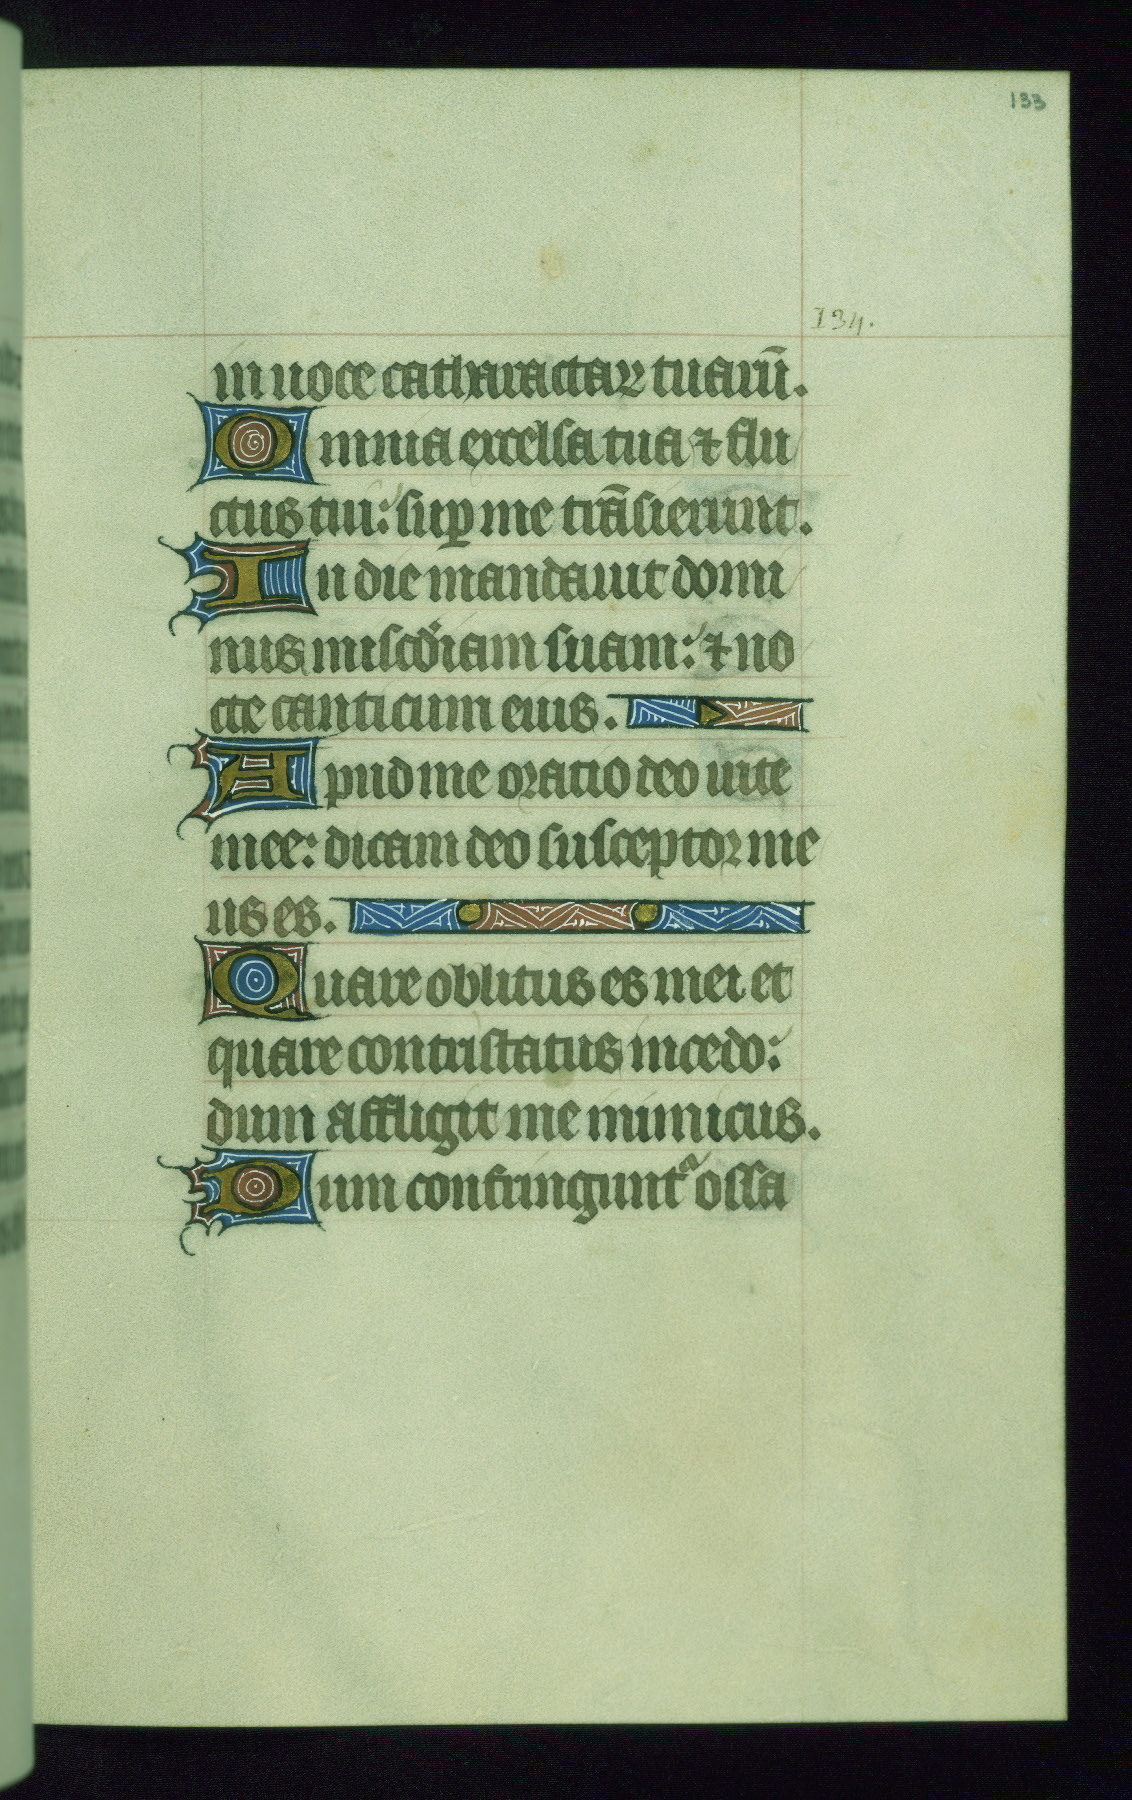 133
134.
in uoce catharactaꝝ tuaru̅.
Omnia excelsa tua ⁊ flu
ctus tui: suꝑ me tra̅sierunt.
In die mandauit domi
nus miscd̓iam suam: ⁊ no
cte canticum eius.
Apud me oratio deo uite
mee: dicam deo susceptor me
us es.
Quare oblitus es mei et
quare contristatus incedo:
dum affligit me inimicus.
Dum confringuntᷣ ossa